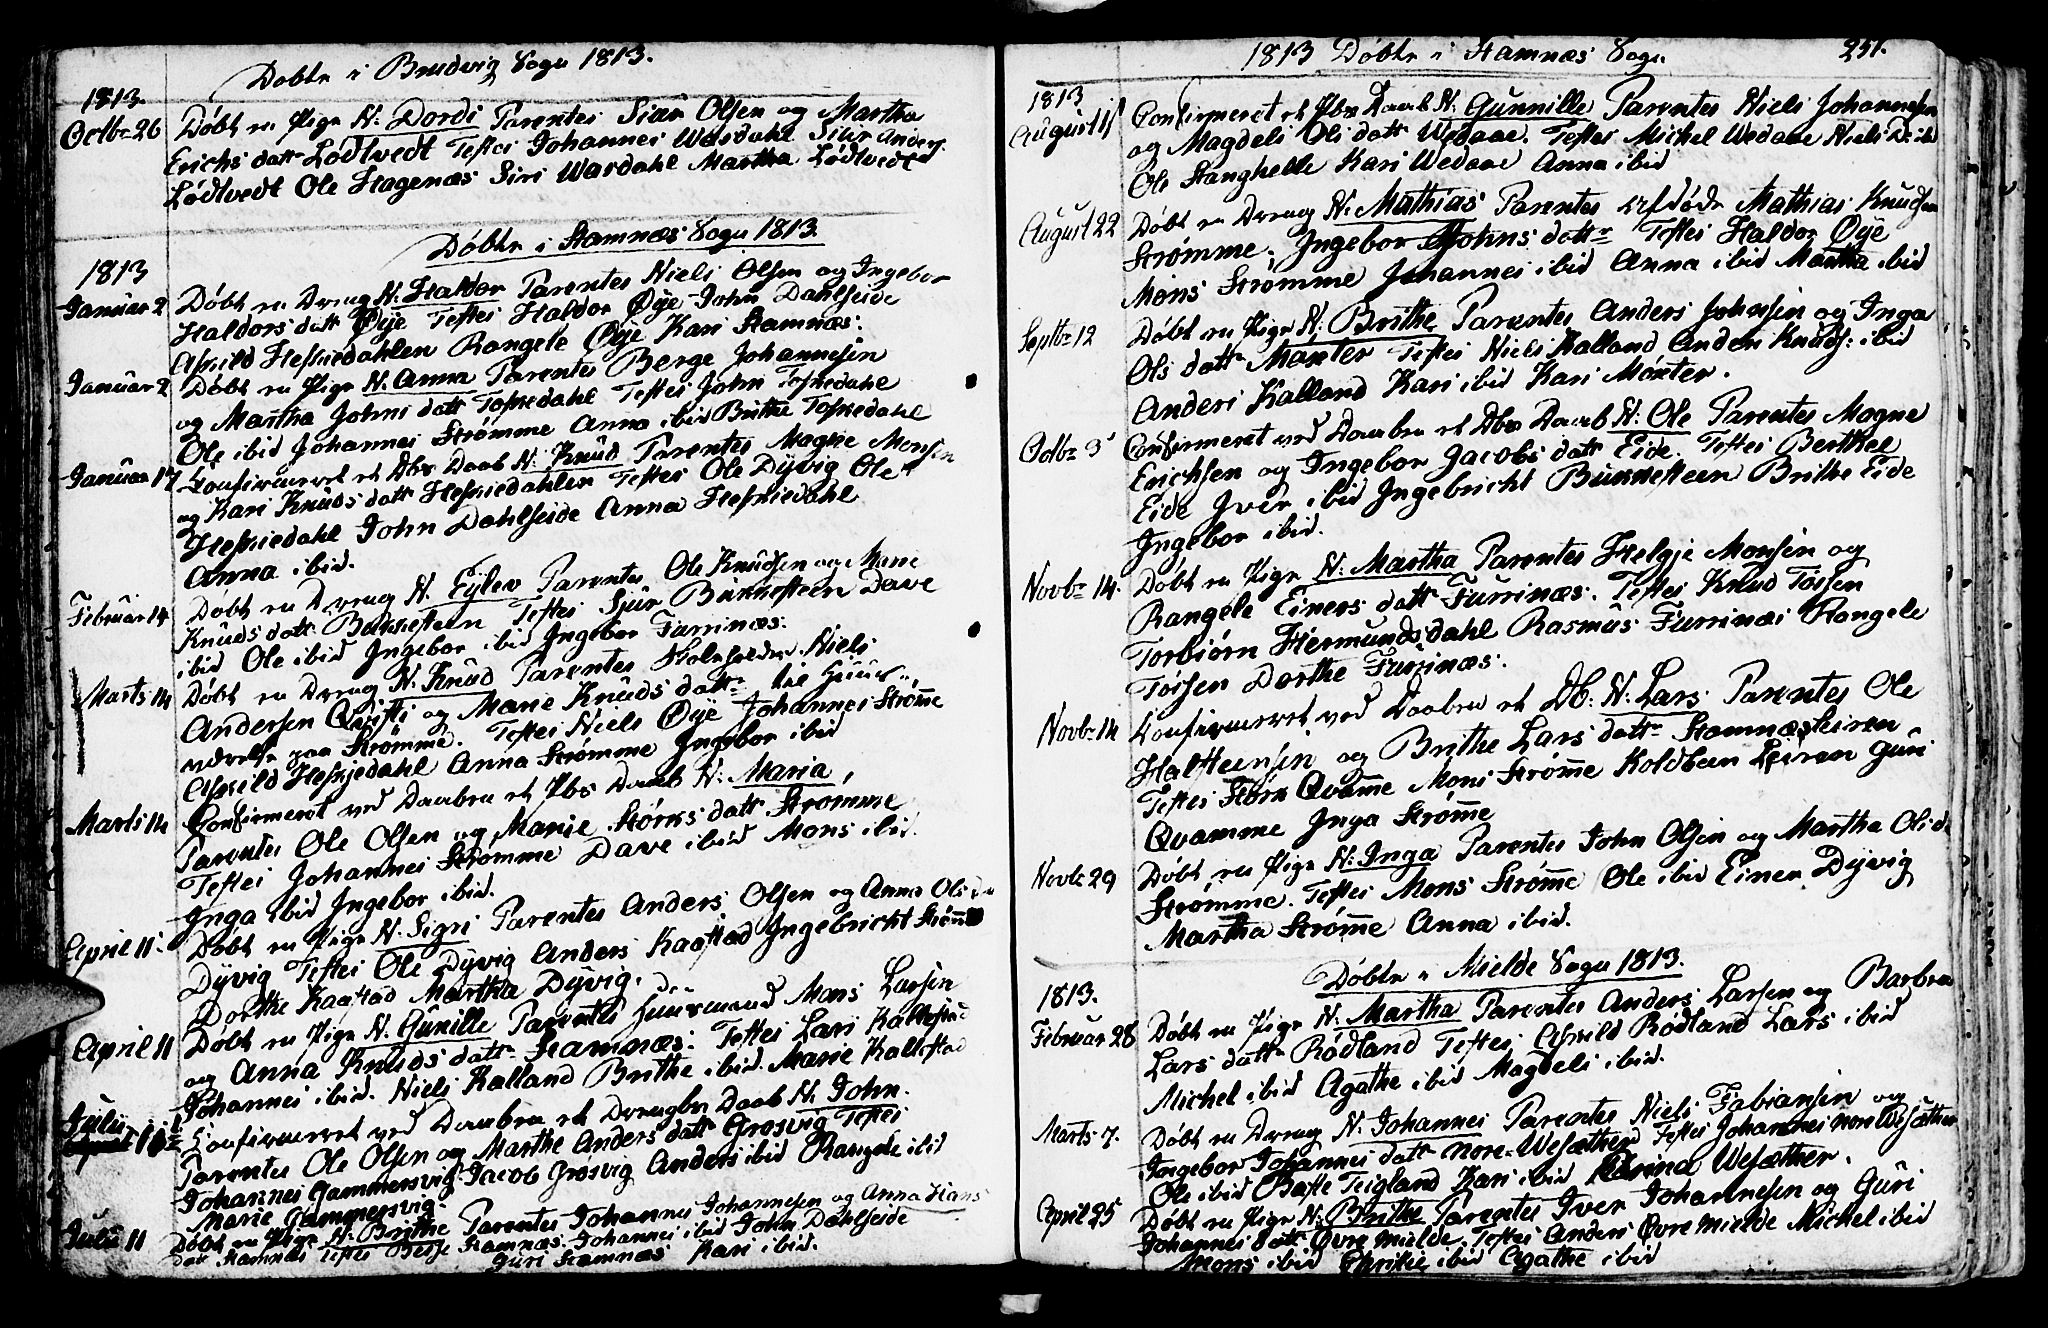 Døbte i Brudvig Sogn 1813.
1813.
Octbr 26 Døbt en Pige N. Dordi Parentes Siur Olsen og Martha
Erichs datt Lødtvedt Testes Johannes Wardahl Siur Anders.
Lødtvedt Ole Hagenæs Siri Wardahl Martha Lødtvedt
Døbte i Stamnæs Sogn 1813.
1813
Januar 2 Døbt en Dreng N. Haldor Parentes Niels Olsen og Ingebor
Haldors datt Øye Testes Haldor Øye John Dahlseide
Asseild Hesjedahlen Rangele Øye Kari Stamnæs.
Januar 2 Døbt en Pige N. Anna Parentes Berge Johannesen
og Martha Johns datt Toskedahl Testes John Toskedahl
Ole ibid Johannes Strømme Anna ibid Brithe Toskedahl
Januar 17 Confirmeret et Dbr Daab N. Knud Parentes Magne Monsen
og Kari Knuds datt Hesjedahlen Testes Ole Dyvig Ole
Hesjedahl John Dahlseide Anna Hesjedahl
Anna ibid.
Februar 14 Døbt en Dreng N. Eylev Parentes Ole Knudsen og Marie
Knuds datt Bukkesteen Testes Sjur Bukkesteen Dave
ibid Ole ibid Ingebor ibid Ingebor Furrinæs.
Marts 14 Døbt en Dreng N. Knud Parentes Niels
Andersen Qvisti og Marie Knuds datt til Huus
værelse paa Strømme. Testes Niels Øye Johannes Strøm̅e
Asseild Hesjedahl Anna Strømme Ingebor ibid
Marts 14 Confirmeret ved Daaben et Pbr Daab N. Maria,
Parentes Ole Olsen og Marie Størks datt Strømme
Testes Johannes Strømme Dave ibid Mons ibid.
Inga ibid Ingebor ibid.
April 11. Døbt en Pige N. Sigri Parentes Anders Olsen og Anna Ols d
Dyvig Testes Ole Dyvig Anders Kaastad Ingebricht Strøm̅e
Dorthe Kaastad Martha Dyvig.
April 11 Døbt en Pige N. Gunille Parentes Huusmand Mons Larsen
og Anna Knuds datt Stamnæs. Testes Lars Kallestad
Johannes ibid. Niels Kalland Brithe ibid. Marie Kallestad
Julii 11 Confirmeret ved Daaben et Drengbr Daab N. John.
Parentes Ole Olsen og Marthe Anders datt Grosvig Testes
Johannes Gammersvig. Jacob Grosvig Anders ibid Rangele ibid
Marie Gammersvig.
Julii 11 Døbt en Pige N. Brithe Parentes Johannes Johannesen og Anna Hans
datt Stamnæs Testes Berge Stamnæs. Johannes ibid John Dahlseide
Guri Stamnæs Kari ibid.
1813 Døbte i Stamnæs Sogn 251.
1813
August 15 Confirmeret et Pbr Daab N. Gunnille Parentes Niels Johannesen
og Magdeli Ols datt Wedaae. Testes Michel Wedaae Niels
Ole Stanghelle Kari Wedaae Anna ibid
August 22 Døbt en Dreng N. Mathias Parentes afdøde Mathias Knudsen
Strømme, Ingebor Johns datt Testes Haldor Øye
Mons Strømme Johannes ibid Anna ibid Martha ibid
Septbr 12 Døbt en Pige N. Brithe Parentes Anders Johnsen og Inga
Ols datt Mønter Testes Niels Kalland Anders Knuds: ibid
Anders Kalland Kari ibid Kari Mønter.
Octbr 3 Confirmeret ved Daaben et Dbr Daab N. Ole Parentes Magne
Erichsen og Ingebor Jacobs datt Eide. Testes Berthel
Eide Iver ibid Ingebricht Bukkesteen Brithe Eide
Ingebor ibid.
Novbr 14. Døbt en Pige N. Martha Parentes Helgje Monsen og
Rangele Einers datt Furrinæs. Testes Knud Tøssen
Torbiørn Hermundsdahl Rasmus Furrinæs Rangele
Tøssen Dorthe Furrinæs.
Novbr 14 Confirmeret ved Daaben et Db. N. Lars Parentes Ole
Halsteensen og Brithe Lars datt Stamnæsleiren
Testes Størk Qvam̅e Mons Strøm̅e Koldbeen Leiren Guri
Qvamme Inga Strøm̅e
Novbr 29 Døbt en Pige N. Inga Parentes John Olsen og Martha Ols d
Strømme. Testes Mons Strøm̅e Ole ibid Einer Dyvig
Martha Strøm̅e Anna ibid.
Døbte i Mielde Sogn 1813.
1813.
Februar 28 Døbt en Pige N. Martha Parentes Anders Larsen og Barbra
Lars datt Rødland Testes Asseild Rødland Lars ibid
Michel ibid Agathe ibid Magdeli ibid.
Marts 7. Døbt en Dreng N. Johannes Parentes Niels Fabiansen og
Ingebor Johannes datt Nore-Wesæther Testes Johannes nore Wesæther
Ole ibid Baste Teigland Kari ibid Wesæther.
April 25 Døbt en Pige N. Brithe Parentes Iver Johannesen og Guri
Johannes datt Øvre Mielde. Testes Anders Øvre Mielde Michel ibid
Mons ibid Christie ibid Agathe ibid